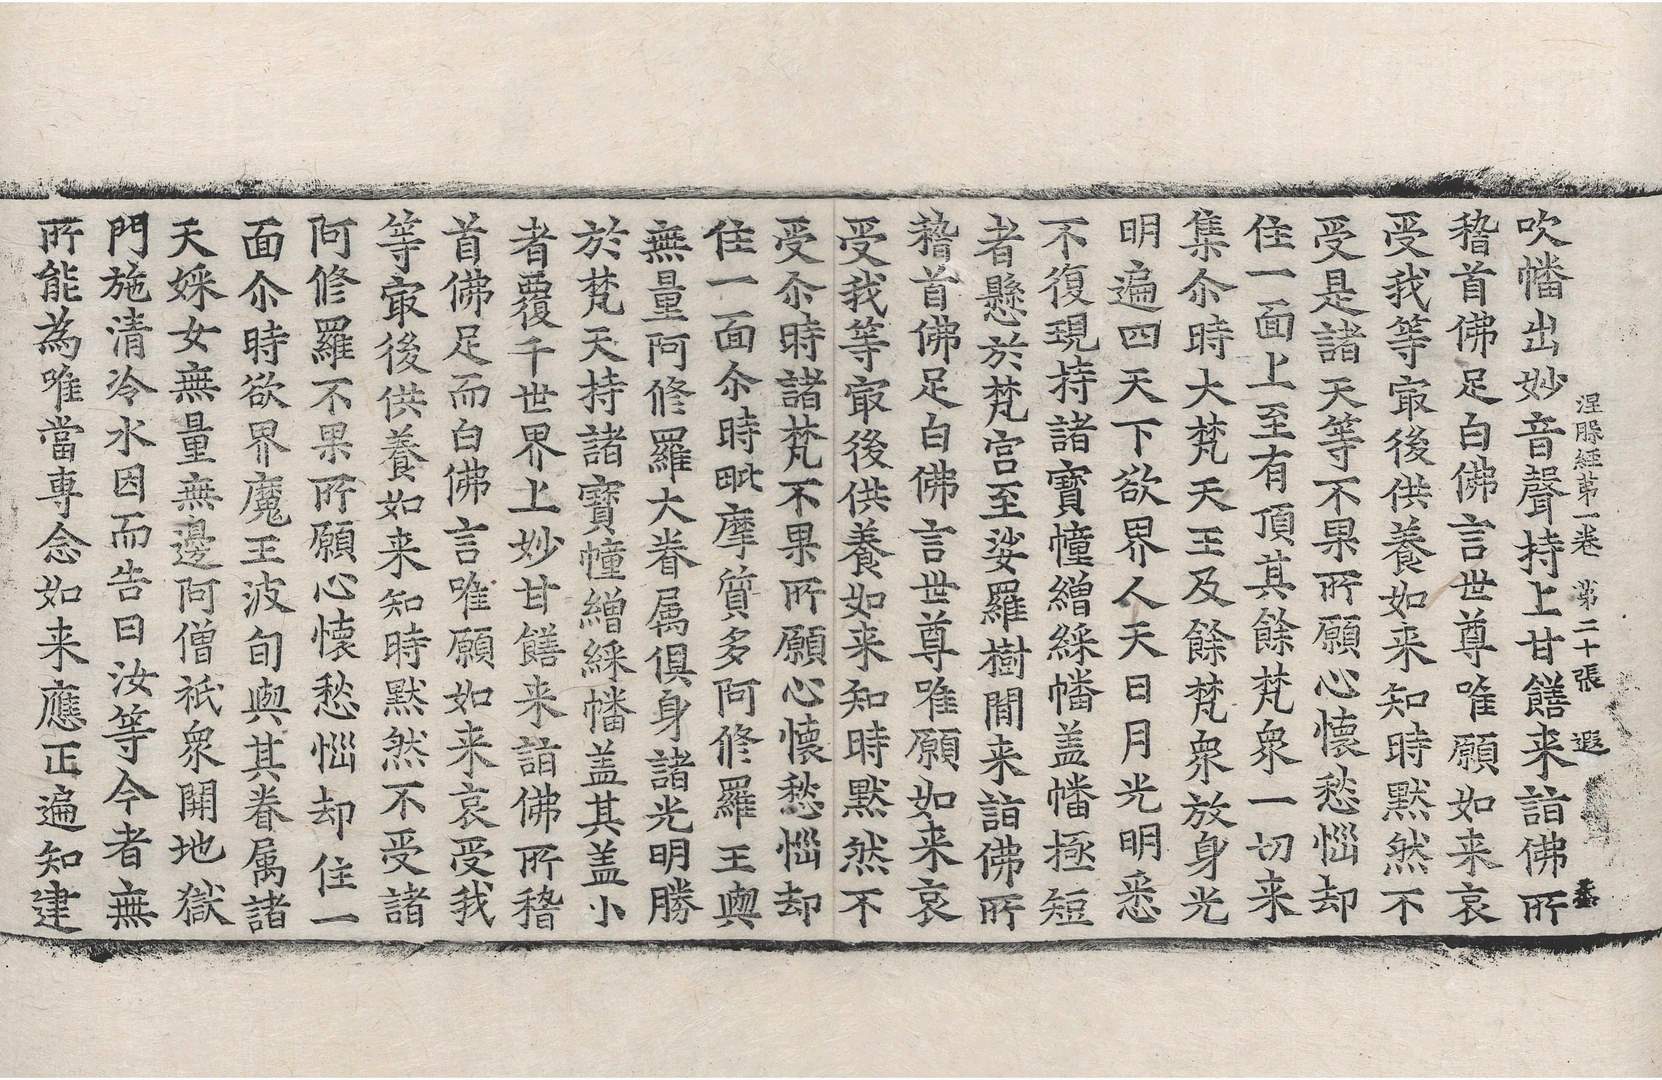 涅脲經苐一卷 第二十張 遐
吹幡出妙音聲持上甘饍来詣佛所
稽首佛足白佛言世尊唯願如来哀
受我等㝡後供養如来知時黙然不
受是諸天等不果所願心懐愁惱却
住一面上至有頂其餘梵衆一切来
集尒時大梵天王及餘梵衆放身光
明遍四天下欲界人天日月光明悉
不復現持諸寶幢繒綵幡盖幡極短
者懸於梵宫至娑羅樹間来詣佛所
稽首佛足白佛言世尊唯願如来哀
受我等㝡後供養如来知時黙然不
受尒時諸梵不果所願心懐愁惱却
住一面尒時毗摩質多阿修羅王與
無量阿修羅大眷属俱身諸光明勝
於梵天持諸寶幢繒綵幡盖其盖小
者覆千世界上妙甘饍来詣佛所稽
首佛足而白佛言唯願如来哀受我
等㝡後供養如来知時黙然不受諸
阿修羅不果所願心懐愁惱却住一
面尒時欲界魔王波旬與其眷属諸
天婇女無量無邊阿僧祇衆開地獄
門施清冷水因而告曰汝等今者無
所能為唯當専念如来應正遍知建